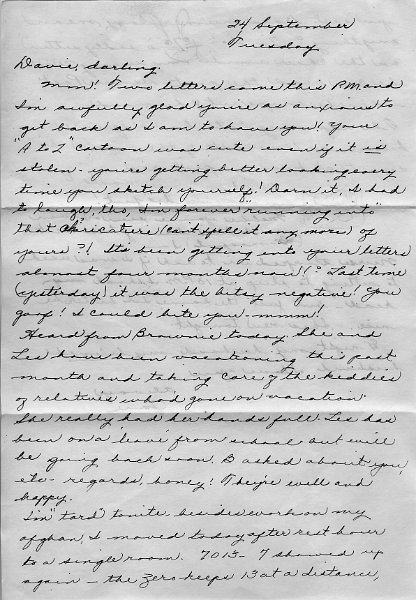 24 September
Tuesday
Davie, darling.
Mm! Two letters came this P.M. and
I'm awfully glad you're as anxious to
get back as I am to have you! Your
"A to Z" cartoon was cute even if it is
stolen - you're getting better looking every
time you sketch yourself! Darn it, I had
to laugh, tho, I'm forever "running into"
that caricature (can't spell it any more) of
yours?! It's been getting into your letters
almost four months now!? Last time
(yesterday) it was the bitsy negative! You
goof! I could bite you - mmm!
Heard from Brownie today. She and
Les have been vacationing this past
month and taking care of the kiddies
of relatives who'd gone on vacation.
She really had her hands full. Les has
been on a leave from school but will
be going back soon. B asked about you,
etc - regards, honey! They're well and
happy.
I'm "tard" tonite. besides work on my
afghan, I moved today after rest hour
to a single room. 7013 - 7 showed up
again - the zero keeps 13 at a distance,